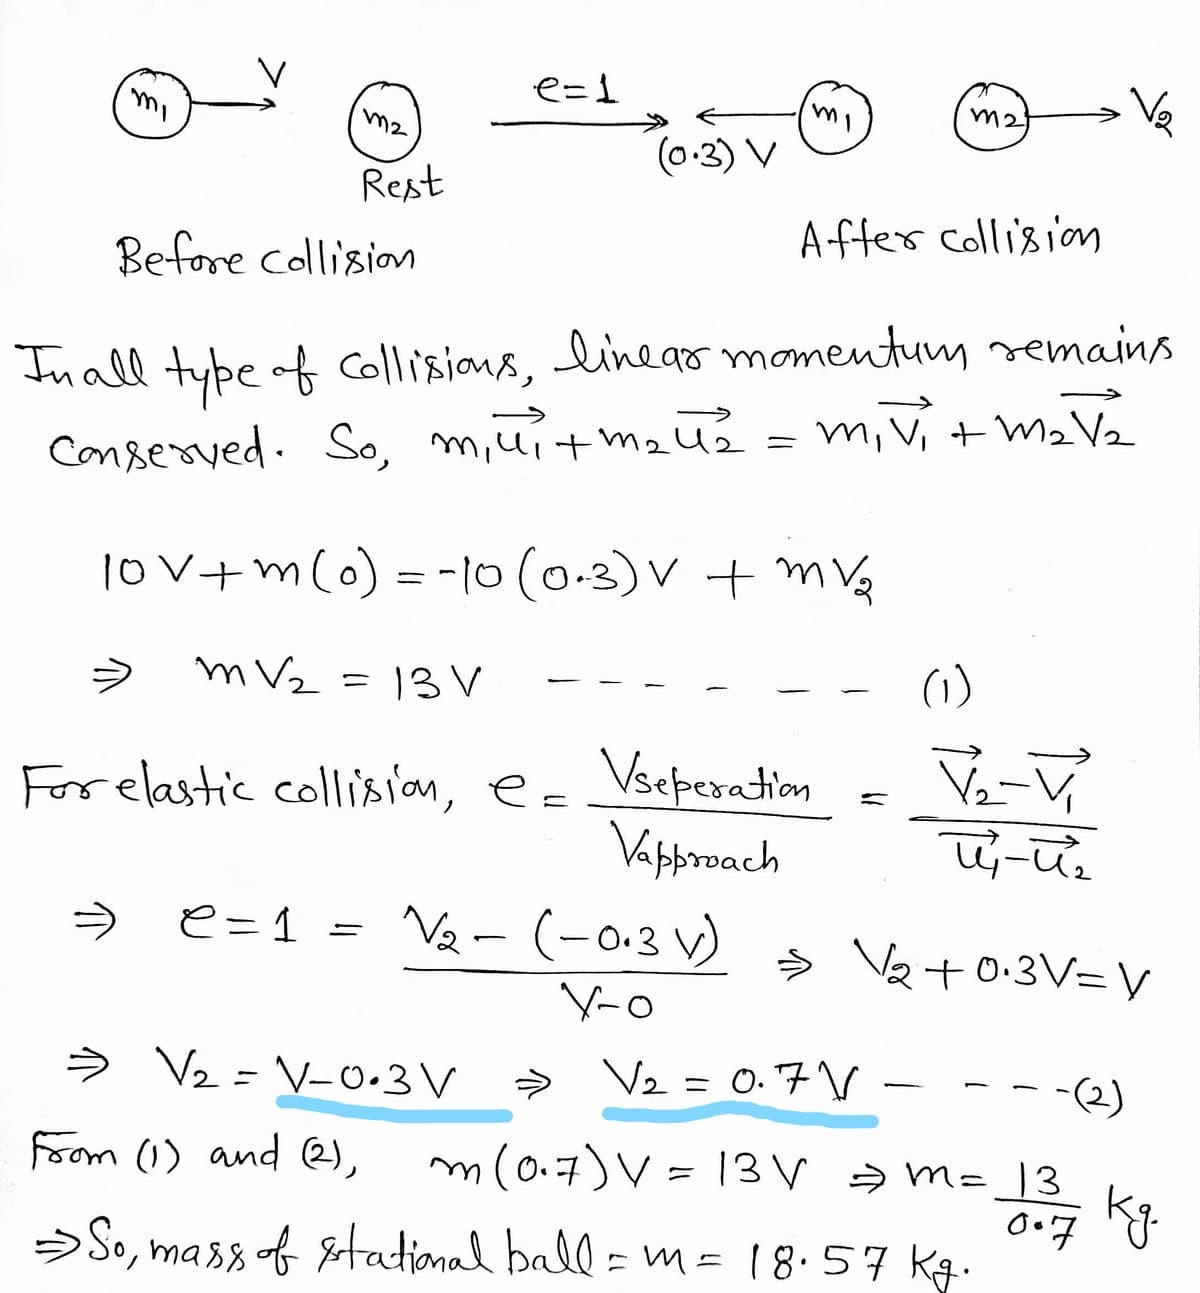 m₁ V m₂ e=1 (0.3) V m₁ m₂ V₂
Rest
Before collision After collision
In all type of collisions, linear momentum remains
conserved. So, m₁u⃗₁ + m₂u⃗₂ = m₁V⃗₁ + m₂V⃗₂
10 V + m(0) = -10 (0.3) V + m V₂
⇒ m V₂ = 13 V - - - - - - - (1)
For elastic collision, e = Vseperation / Vapproach = (V⃗₂ - V⃗₁) / (u⃗₁ - u⃗₂)
⇒ e = 1 = (V₂ - (-0.3 V)) / (V-0) ⇒ V₂ + 0.3V = V
⇒ V₂ = V-0.3V ⇒ V₂ = 0.7V - - - - -(2)
From (1) and (2), m(0.7)V = 13V ⇒ m = 13/0.7 Kg.
⇒ So, mass of stational ball = m = 18.57 Kg.